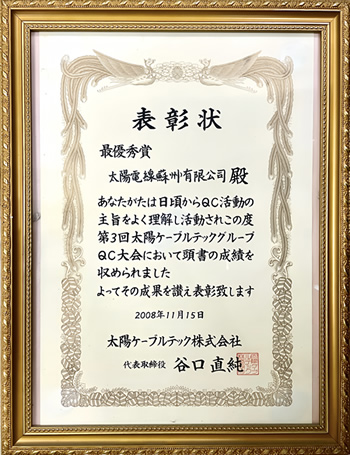 表彰状
最優秀賞
太陽電線蘇州有限公司 殿
あなたがたは日頃からQC活動の
主旨をよく理解し活動されこの度
第3回太陽ケーブルテックグループ
QC大会において頭書の成績を
収められました
よってその成果を讃え表彰致します
2008年11月15日
太陽ケーブルテック株式会社
代表取締役 谷口 直純